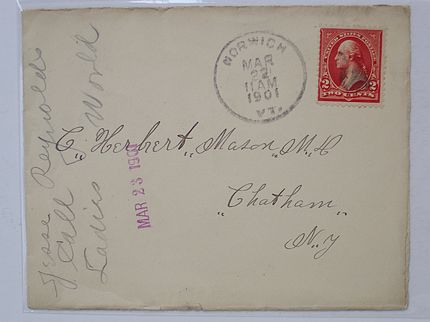 NORWICH
MAR
22
11 AM
1901
VT.
UNITED STATES
2 TWO CENTS 2
C. Herbert Mason M.D
Chatham
N.Y
MAR 23 1901
Jesse Reynolds
Call
Ladies World